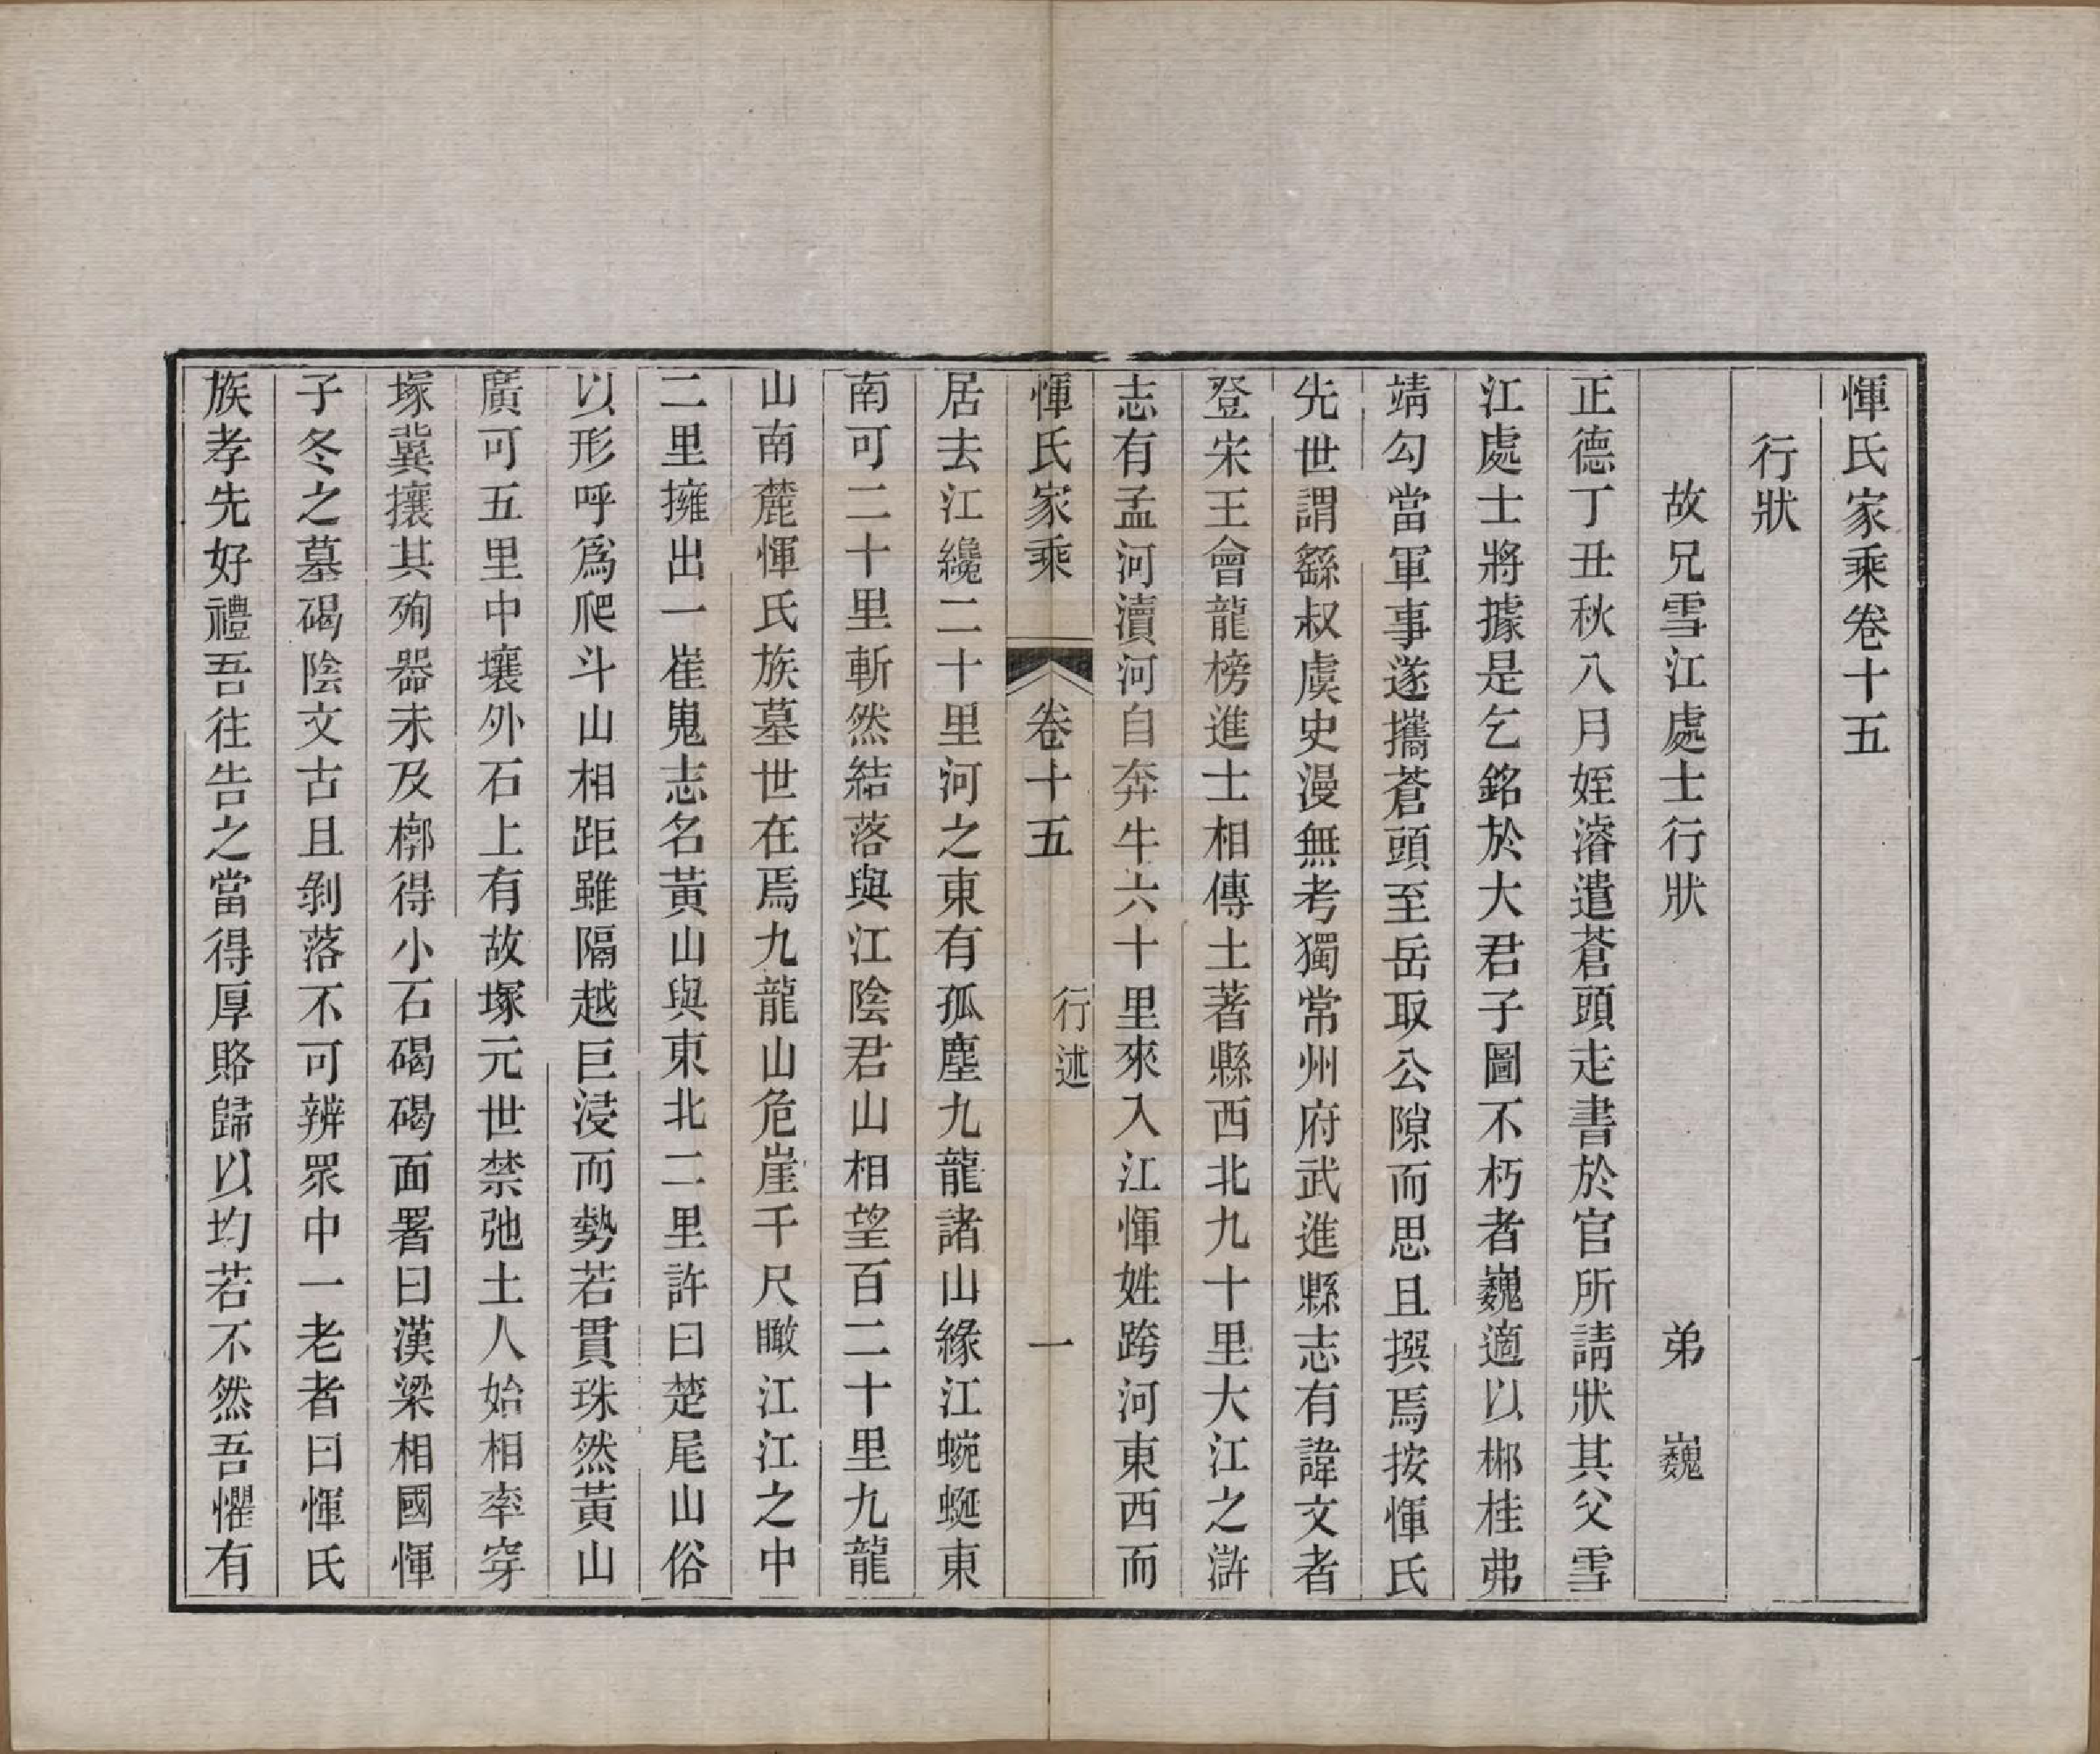 惲氏家乘卷十五
行狀
故兄雪江處士行狀　弟　巍
正德丁丑秋八月姪濬遣蒼頭走書於官所請狀其父雪
江處士將據是乞銘於大君子圖不朽者巍適以郴桂弗
靖勾當軍事遂攜蒼頭至岳取公隙而思且撰焉按惲氏
先世謂繇叔虞史漫無考獨常州府武進縣志有諱文者
登宋王會龍榜進士相傳土著縣西北九十里大江之滸
志有孟河瀆河自奔牛六十里來入江惲姓跨河東西而
惲氏家乘　卷十五　行述　一
居去江纔二十里河之東有孤塵九龍諸山緣江蜿蜒東
南可二十里斬然結落與江陰君山相望百二十里九龍
山南麓惲氏族墓世在焉九龍山危崖千尺瞰江江之中
二里擁出一崔嵬志名黃山與東北二里許曰楚尾山俗
以形呼爲爬斗山相距雖隔越巨浸而勢若貫珠然黃山
廣可五里中壤外石上有故塚元世禁弛土人始相率穿
塚冀攘其殉器未及槨得小石碣碣面署曰漢梁相國惲
子冬之墓碣陰文古且剝落不可辨眾中一老者曰惲氏
族孝先好禮吾往告之當得厚賂歸以均若不然吾懼有